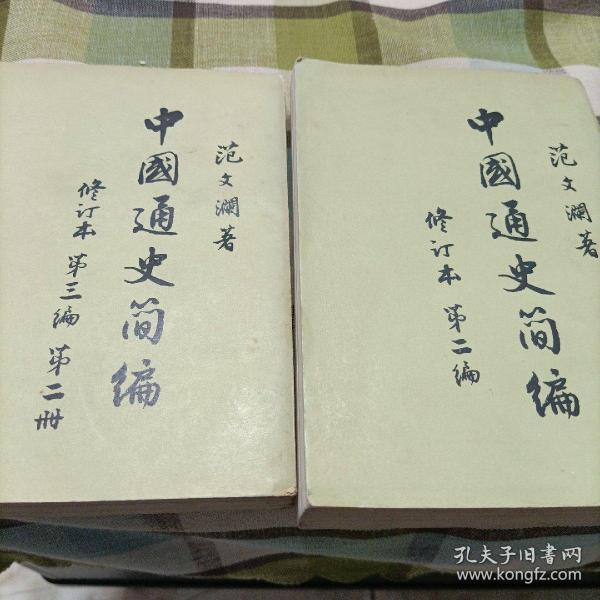 范文澜著
中國通史简编
修订本 第三编 第二册
范文澜著
中國通史简编
修订本 第二编
孔夫子旧书网
www.kongfz.com